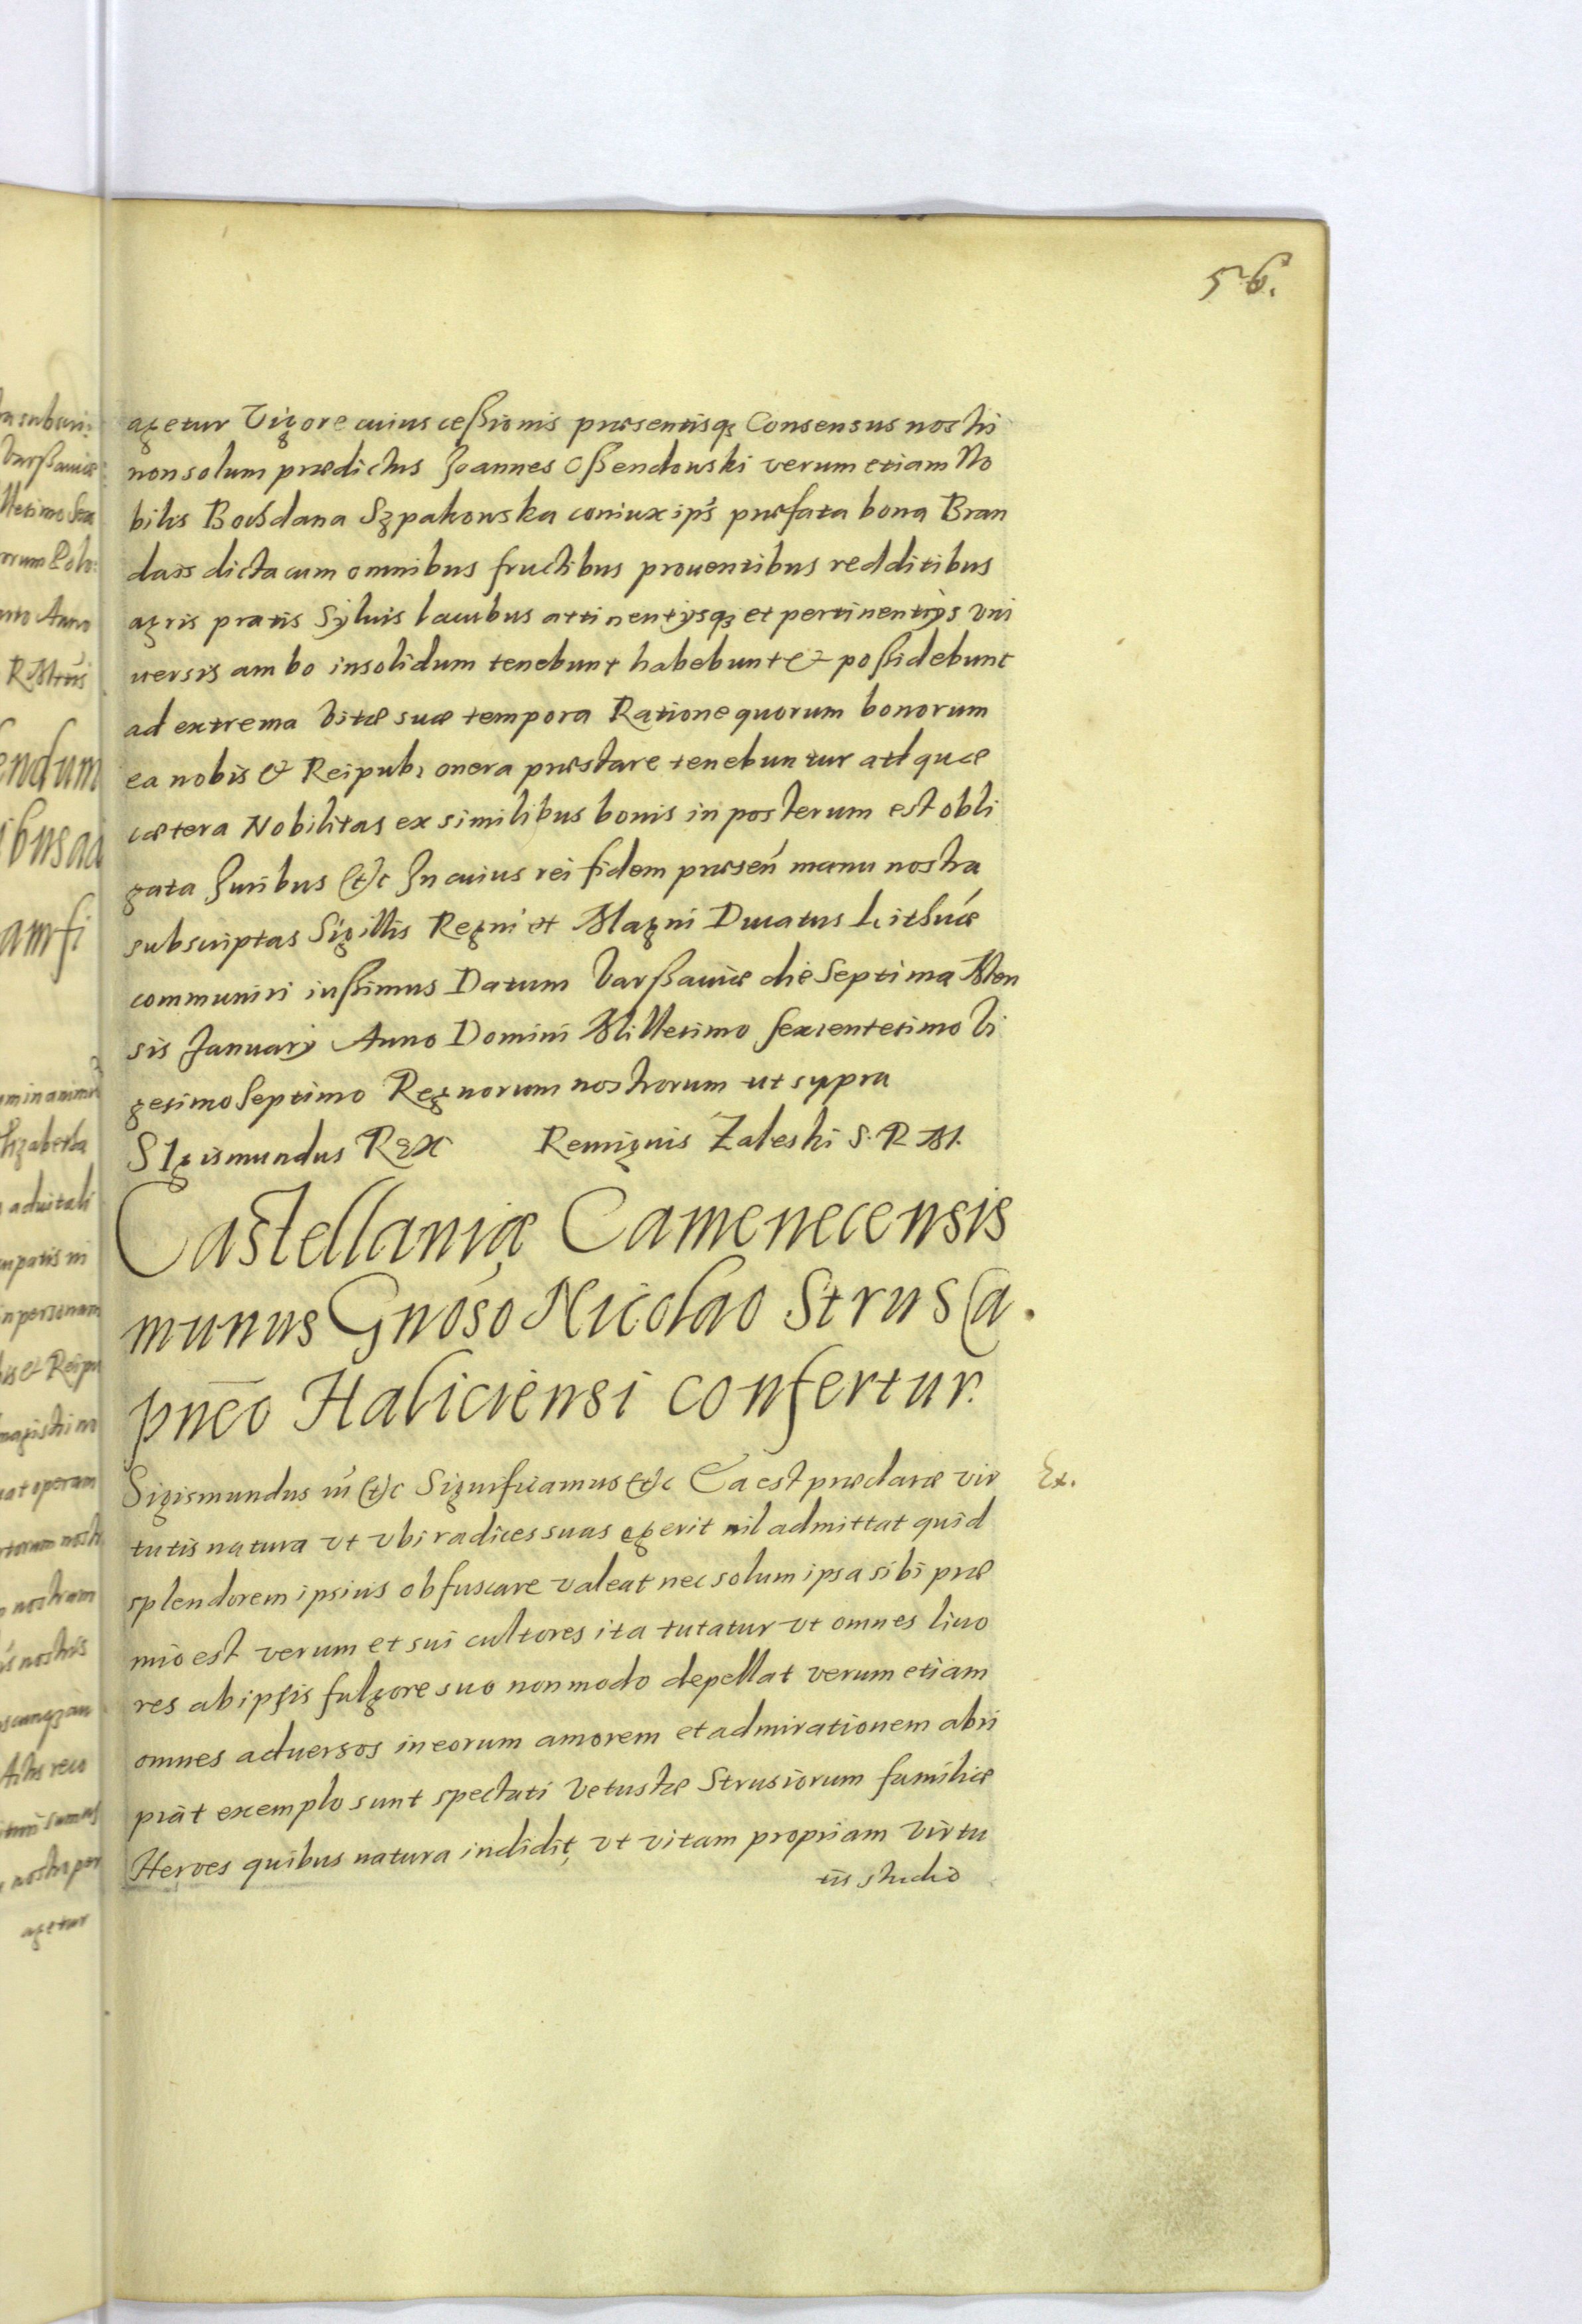 56.
agetur Vigore cuius cessionis præsentisq; Consensus nostri
non solum prædictus Joannes Ossendowski verum etiam No
bilis Bohdana Szpakowska coniux ips̃ præfata bona Bran
dais dicta cum omnibus fructibus prouentibus redditibus
agris pratis Syluis lacubus attinentÿsq; et pertinentÿs vni
uersis ambo insolidum tenebunt habebunt & possidebunt
ad extrema Vitæ suæ tempora Ratione quorum bonorum
ea nobis & Reipub: onera præstare tenebuntur ad quæ
cætera Nobilitas ex similibus bonis in posterum est obli
gata Juribus (t)c In cuius rei fidem præsen̄ manu nostra
subscriptas Sigillis Regni et Magni Ducatus Lithuæ
communiri iussimus Datum Varssauiæ die Septima Men
sis Januarÿ Anno Domini Millesimo Sexcentesimo Vi
gesimo Septimo Regnorum nostrorum ut supra
SIgismundus Rex Remigius Zaleski S. R. M.
Castellaniæ Camenecensis
munus Gnoso Nicolao Strus Ca.
pneo Haliciensi confertur.
Sigismundus iii (t)c Significamus (t)c Ea est præclaræ vir
Ex.
tutis natura vt vbi radices suas egerit nil admittat quid
splendorem ipsius obfuscare valeat nec solum ipsa sibi præ
mio est verum et sui cultores ita tutatur vt omnes liuo
res ab ipsis fulgore suo non modo depellat verum etiam
omnes aduersos in eorum amorem et admirationem abri
piāt exemplo sunt spectati Vetustæ Strusiorum familiæ
Heroes quibus natura indidit vt vitam propriam virtu
tis studio